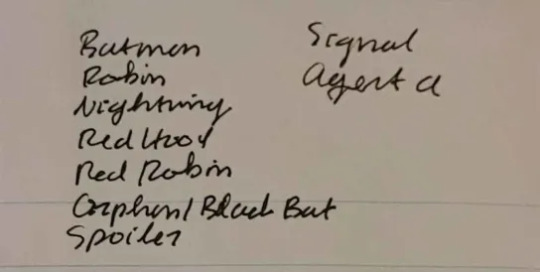 Batman
Robin
Nightwing
Red Hood
Red Robin
Orphan/Black Bat
Spoiler
Signal
Agent A